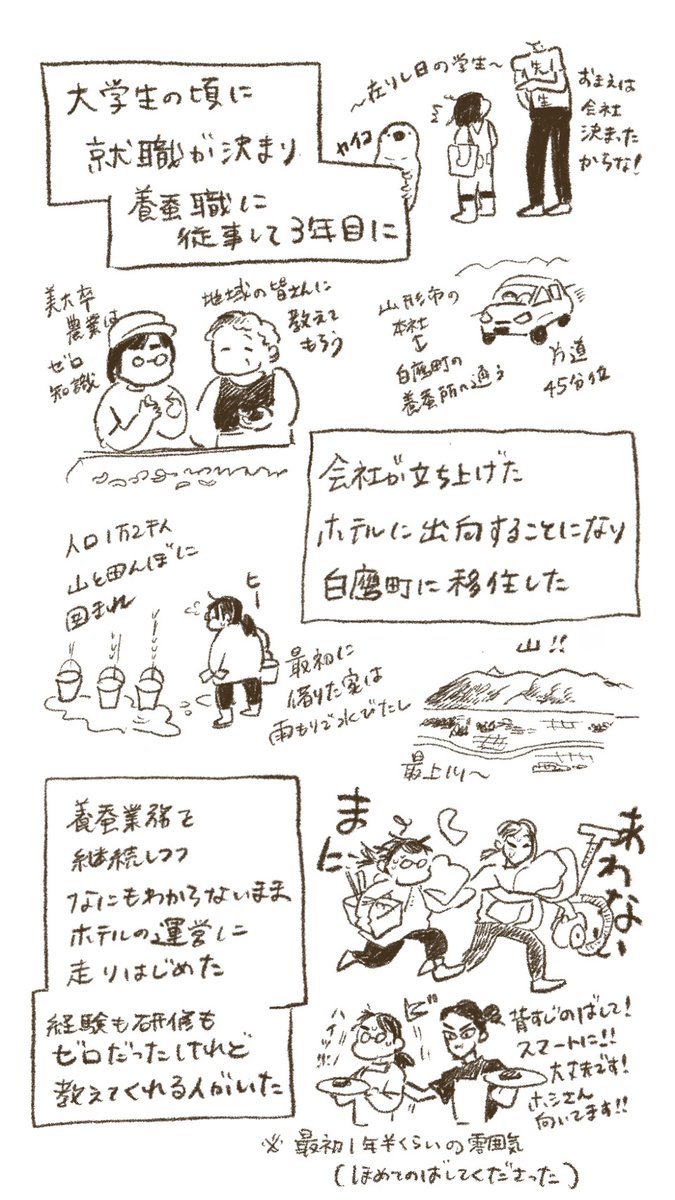 大学生の頃に
就職が決まり
養蚕職に
従事して3年目に
〜在りし日の学生〜
カイコ
先
生
おまえは
会社
決まった
からな!
美大卒
農業は
ゼロ
知識
地域の皆さんに
教えて
もらう
山形市の
本社
↕
白鷹町の
養蚕所へ通う
片道
45分位
会社が立ち上げた
ホテルに出向することになり
白鷹町に移住した
人口1万2千人
山と田んぼに
囲まれ
ヒー
最初に
借りた家は
雨もりで水びたし
山!!
最上川〜
養蚕業務を
継続しつつ
なにもわからないまま
ホテルの運営に
走りはじめた
まに
あわない
経験も研修も
ゼロだったけれど
教えてくれる人がいた
ハイッ!!
ビ
背すじのばして!
スマートに!!
大丈夫です!
ホシさん
向いてます!!
※最初1年半くらいの雰囲気
(ほめてのばしてくださった)